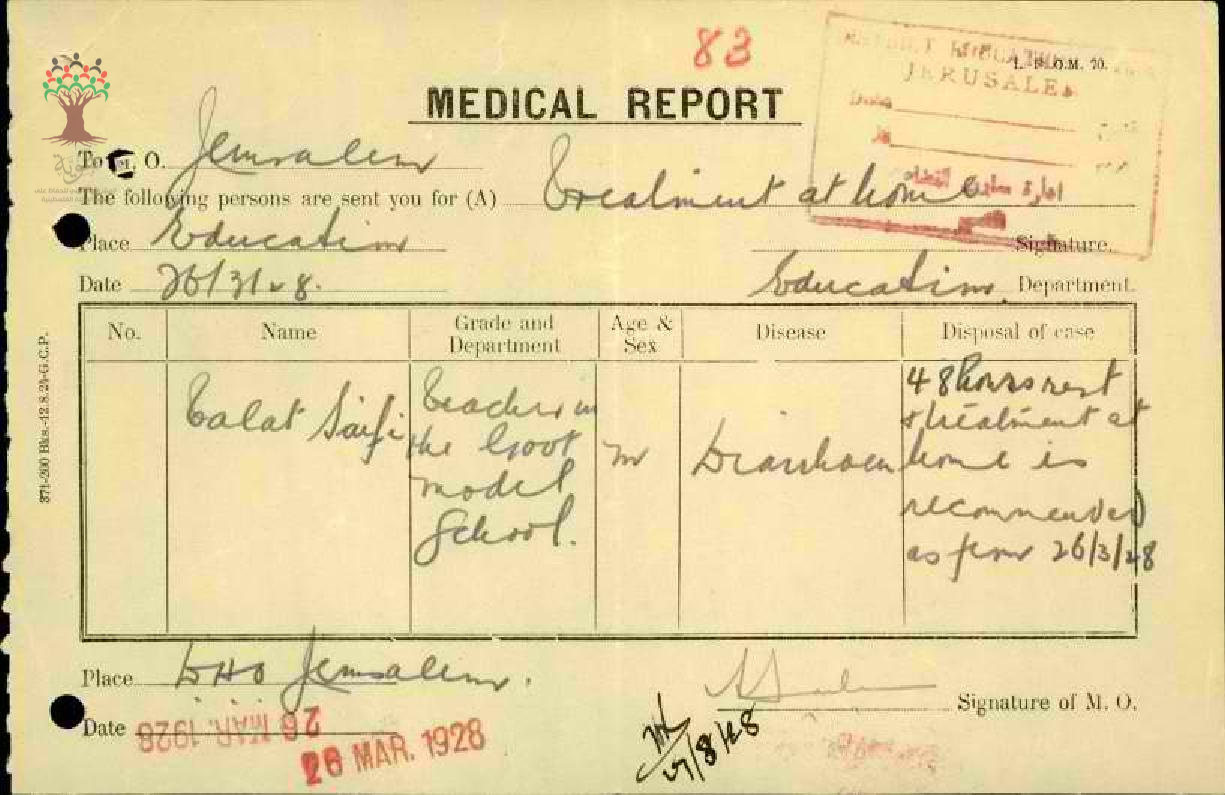 83
DISTRICT EDUCATION
JERUSALEM
Date
MEDICAL REPORT
To M. O. Jerusalem
The following persons are sent you for (A) Treatment at home
Place Education Signature.
Date 26/3/28. Education Department.
No. Name Grade and Department Age & Sex Disease Disposal of case
Talat Saifi
Teacher in
the Govt
model
School.
m
Diarrhoea
48 hours rest
& treatment at
home is
recommended
as from 26/3/28
Place DHO Jerusalem.
Signature of M. O.
Date 26 MAR. 1928
26 MAR. 1928
371-200 Bks.-12.8.24-G.C.P.